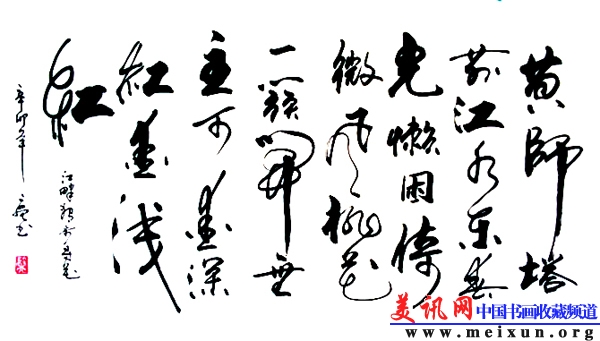 黄師塔
前江水东春
光懒困倚
微风桃花
一簇開無
主可愛深
红愛浅
红
江畔独步寻花
辛卯年
书
美讯网 中国书画收藏频道
www.meixun.org